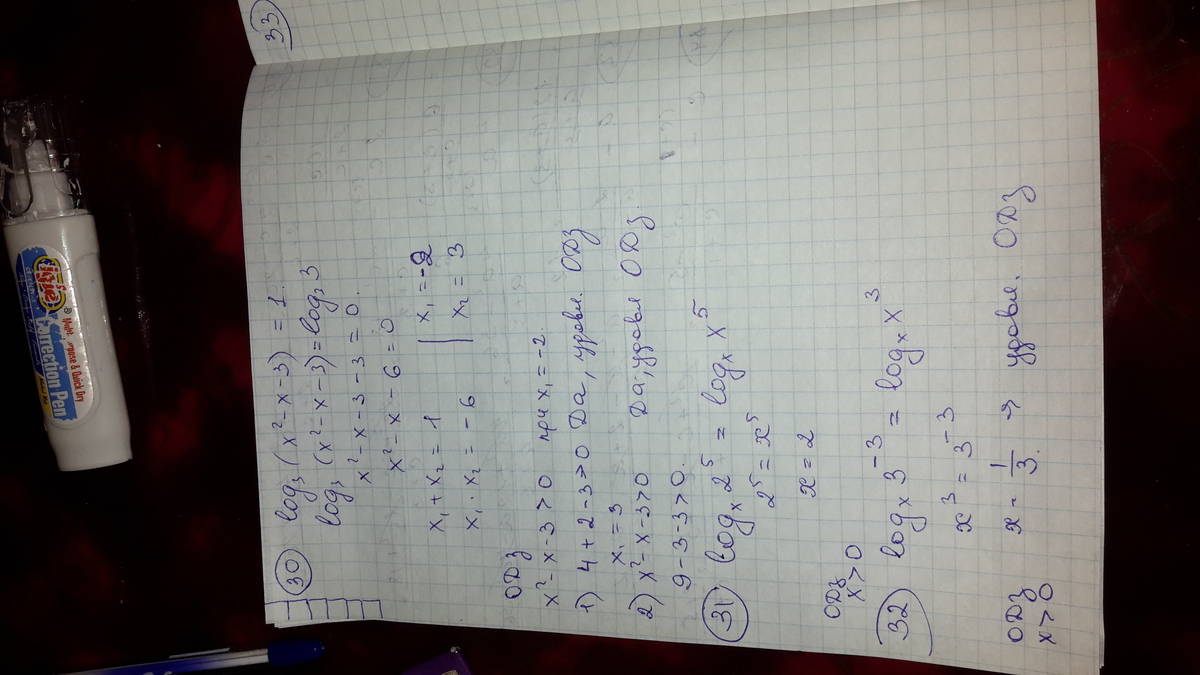 33
30 log₃ (x² - x - 3) = 1.
log₃ (x² - x - 3) = log₃ 3
x² - x - 3 - 3 = 0.
x² - x - 6 = 0
x₁ + x₂ = 1 | x₁ = -2
x₁ · x₂ = -6 | x₂ = 3
ОДЗ
x² - x - 3 > 0 при x₁ = -2.
1) 4 + 2 - 3 > 0 Да, удовл. ОДЗ
x₁ = 3
2) x² - x - 3 > 0 Да, удовл ОДЗ.
9 - 3 - 3 > 0.
31 logₓ 2⁵ = logₓ x⁵
2⁵ = x⁵
x = 2
ОДЗ
x > 0
32 logₓ 3⁻³ = logₓ x³
x³ = 3⁻³
ОДЗ x - 1/3. → удовл. ОДЗ
x > 0
Correction Pen
Purpose & Quick Dry